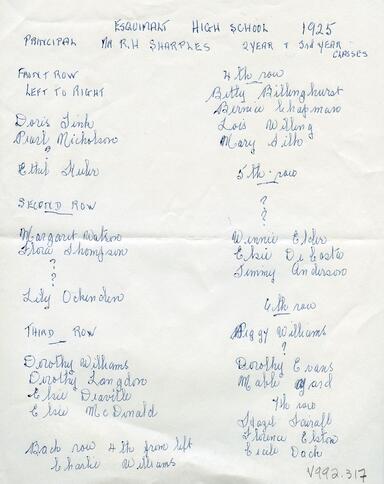 ESQUIMALT HIGH SCHOOL 1925
PRINCIPAL MR R.H SHARPLES 2 YEAR + 3RD YEAR CLASSES
FRONT ROW
LEFT TO RIGHT
Doris Fink
Pearl Nicholson
?
Ethel
SECOND ROW
Margaret Watson
Flora Thompson
?
?
Lily Ockenden
THIRD ROW
Dorothy Williams
Dorothy Langdon
Elsie Deaville
Elsie McDonald
Back row 4th from left
Charlie Williams
4th row
Betty Billinghurst
Bernice Chapman
Lois Willing
Mary
5th row
?
?
?
Winnie Elder
Elsie Da Costa
Jimmy Anderson
6th row
Peggy Williams
?
Dorothy Evans
Mable Gard
7th row
Hazel Fairall
Florence Elston
Cecile Dach
V992.317